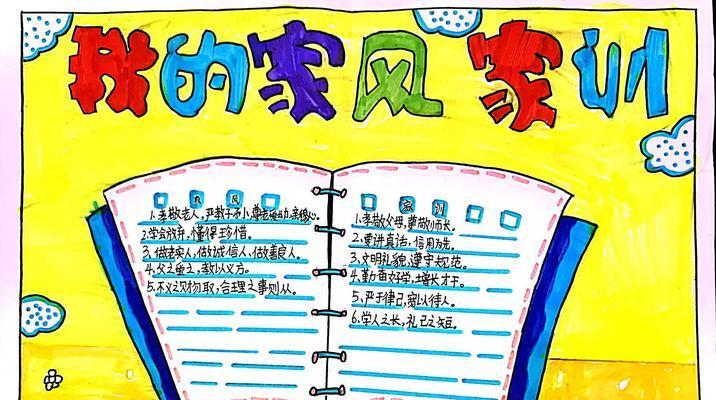 我的家风家训
家风
1.孝敬老人，严教子
2.学会放弃，懂得珍惜。
3.做老实人，做诚信人，做善良人。
4.父之爱之，教以义方。
5.不义之财勿取，合理之事则从。
家训
1.孝敬父母，尊敬师长。
2.要讲真话，信用为先。
3.文明礼貌，遵守规范。
4.勤奋好学，增长才干。
5.严于律己，宽以待人。
6.学人之长，补己之短。